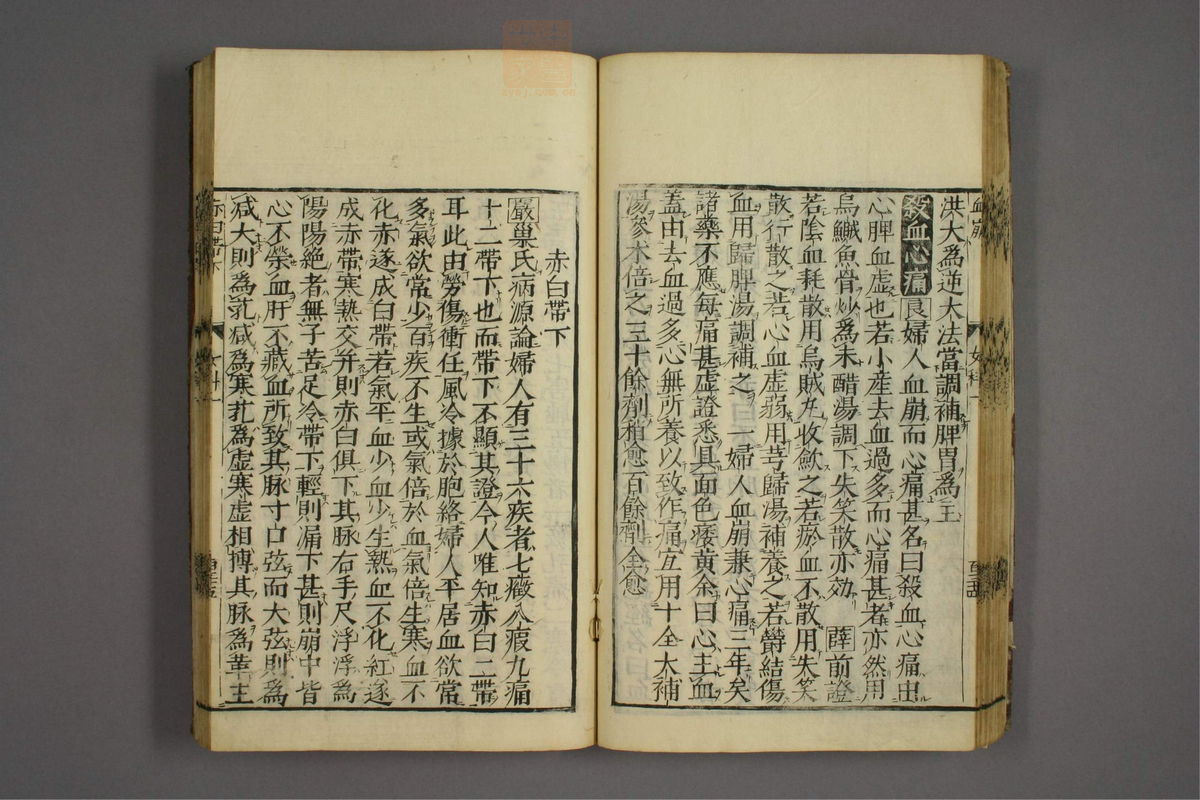 洪大爲逆大法當調補脾胃爲主
殺血心痛 良 婦人血崩而心痛甚名曰殺血心痛由
心脾血虛也若小產去血過多而心痛甚者亦然用
烏鰂魚骨炒爲末醋湯調下失笑散亦効 薛 前證
若陰血耗散用烏賊丸收斂之若瘀血不散用失笑
散行散之若心血虛弱用芎歸湯補養之若欝結傷
血用歸脾湯調補之 一婦人血崩兼心痛三年矣
諸藥不應每痛甚虛證悉具面色痿黃余曰心主血
蓋由去血過多心無所養以致作痛宜用十全大補
湯參朮倍之三十餘劑稍愈百餘劑全愈
赤白帶下
嚴 巢氏病源論婦人有三十六疾者七癥八瘕九痛
十二帶下也而帶下不顯其證今人唯知赤白二帶
耳此由勞傷衝任風冷據於胞絡婦人平居血欲常
多氣欲常少百疾不生或氣倍於血氣倍生寒血不
化赤遂成白帶若氣平血少血少生熱血不化紅遂
成赤帶寒熱交并則赤白俱下其脉右手尺浮浮爲
陽陽絕者無子苦足冷帶下輕則漏下甚則崩中皆
心不榮血肝不藏血所致其脉寸口弦而大弦則爲
減大則爲芤減爲寒芤爲虛寒虛相搏其脉爲革主